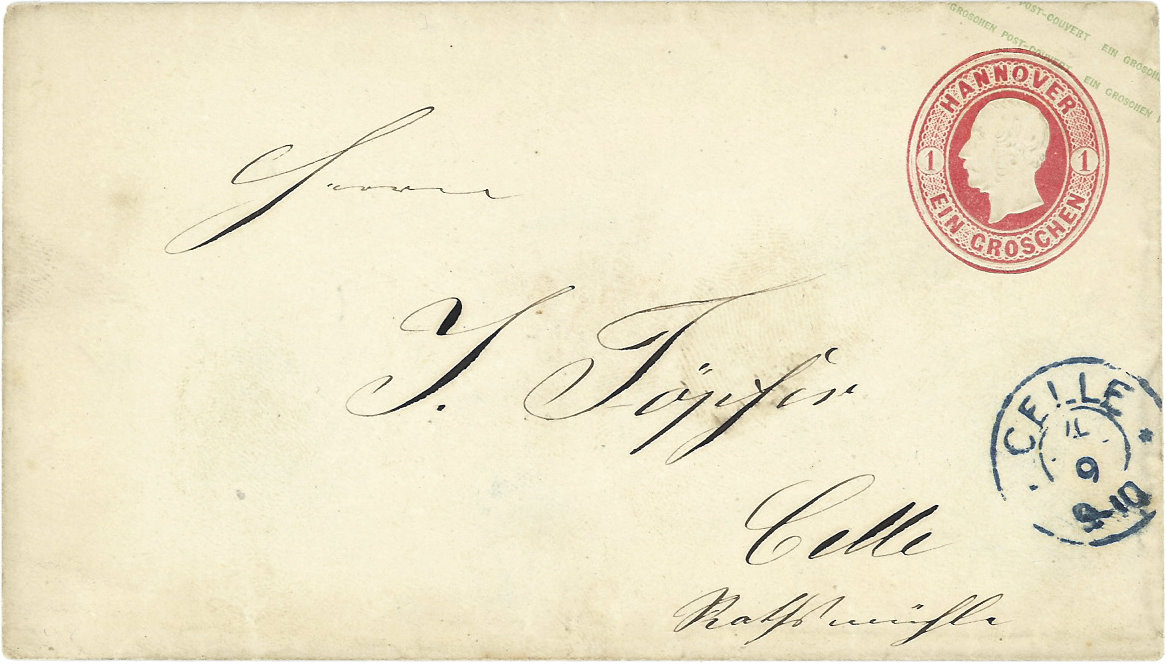 POST-COUVERT EIN GROSCHEN
GROSCHEN POST-COUVERT EIN GROSCHEN
HANNOVER
1 1
EIN GROSCHEN
Herrn
J. Töpfer
CELLE
9
9-10
Celle
Rathsmühle